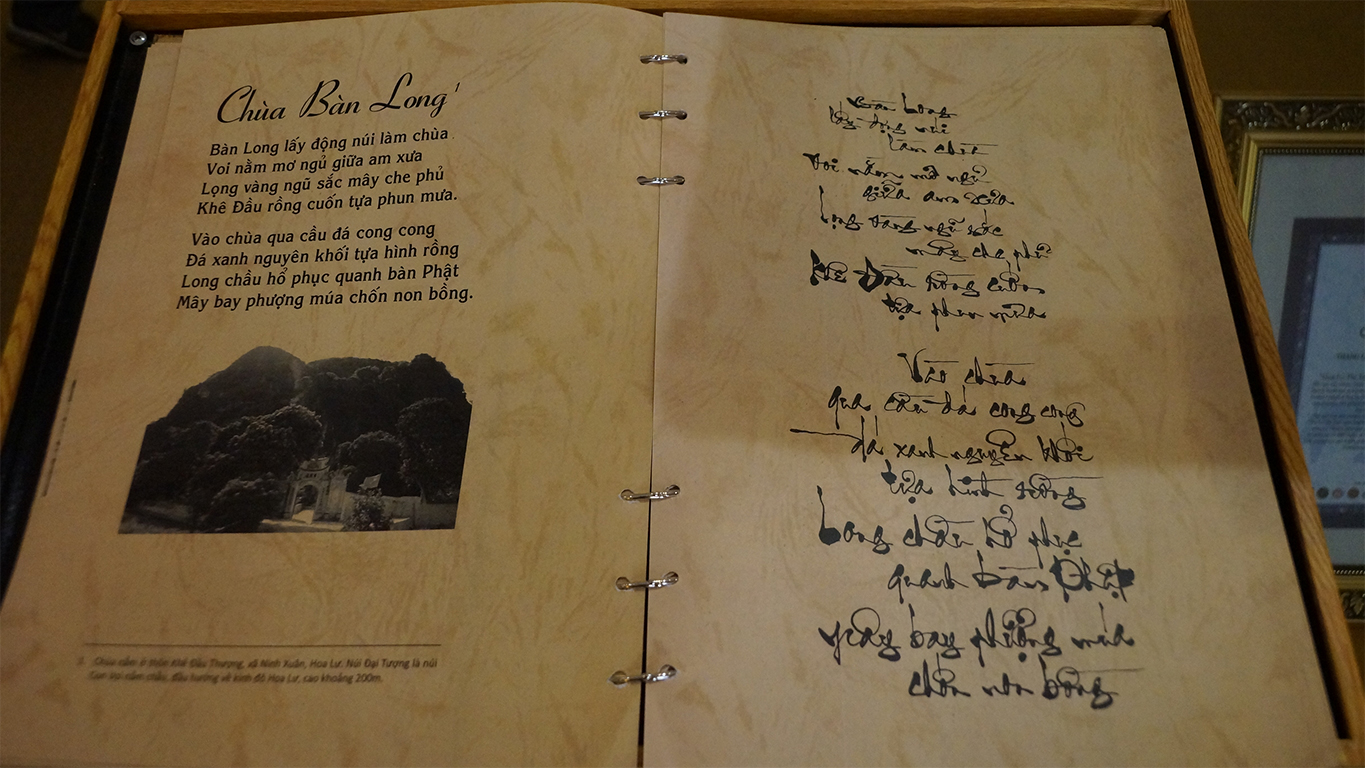 Chùa Bàn Long¹
Bàn Long lấy động núi làm chùa
Voi nằm mơ ngủ giữa am xưa
Lọng vàng ngũ sắc mây che phủ
Khê Đầu rồng cuốn tựa phun mưa.
Vào chùa qua cầu đá cong cong
Đá xanh nguyên khối tựa hình rồng
Long chầu hổ phục quanh bàn Phật
Mây bay phượng múa chốn non bồng.
Chùa nằm ở thôn Khê Đầu Thượng, xã Ninh Xuân, Hoa Lư. Núi Đại Tượng là núi
voi nằm chầu, đầu hướng về kinh đô Hoa Lư, cao khoảng 200m.
Bàn Long
lấy động núi
làm chùa
Voi nằm mơ ngủ
giữa am xưa
Lọng vàng ngũ sắc
mây che phủ
Khê Đầu rồng cuốn
tựa phun mưa
Vào chùa
qua cầu đá cong cong
đá xanh nguyên khối
tựa hình rồng
Long chầu hổ phục
quanh bàn Phật
mây bay phượng múa
chốn non bồng